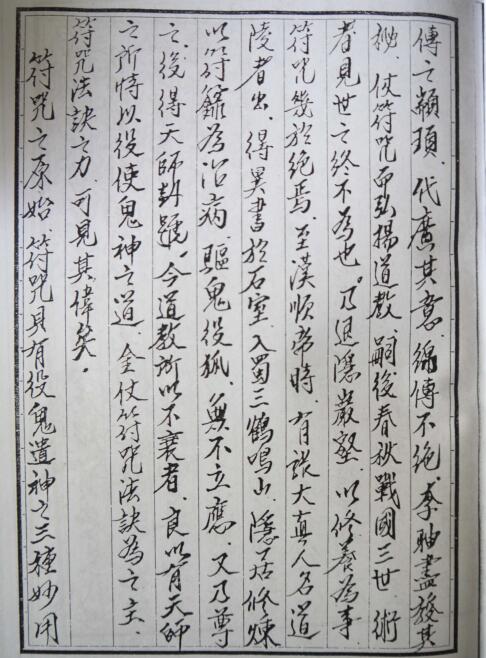 傳之顓頊、代廣其意、綿傳不絕、李耼盡發其
秘、仗符咒而弘揚道教、嗣後春秋戰國三世、術
者見世之終不為也。乃退隱巖壑、以修養為事
符咒幾於絕焉、至漢順帝時、有張大真人名道
陵者出、得異書於石室、入蜀之鶴鳴山、隱居修煉
以符籙為治病、驅鬼役狐、無不立應、又乃尊
之、後得天師封號、今道教所以不衰者、良以有天師
之所恃以役使鬼神之道、全仗符咒法訣為之主、
符咒法訣之力、可見其偉矣。
符咒之原始、符咒具有役鬼遣神之三種妙用